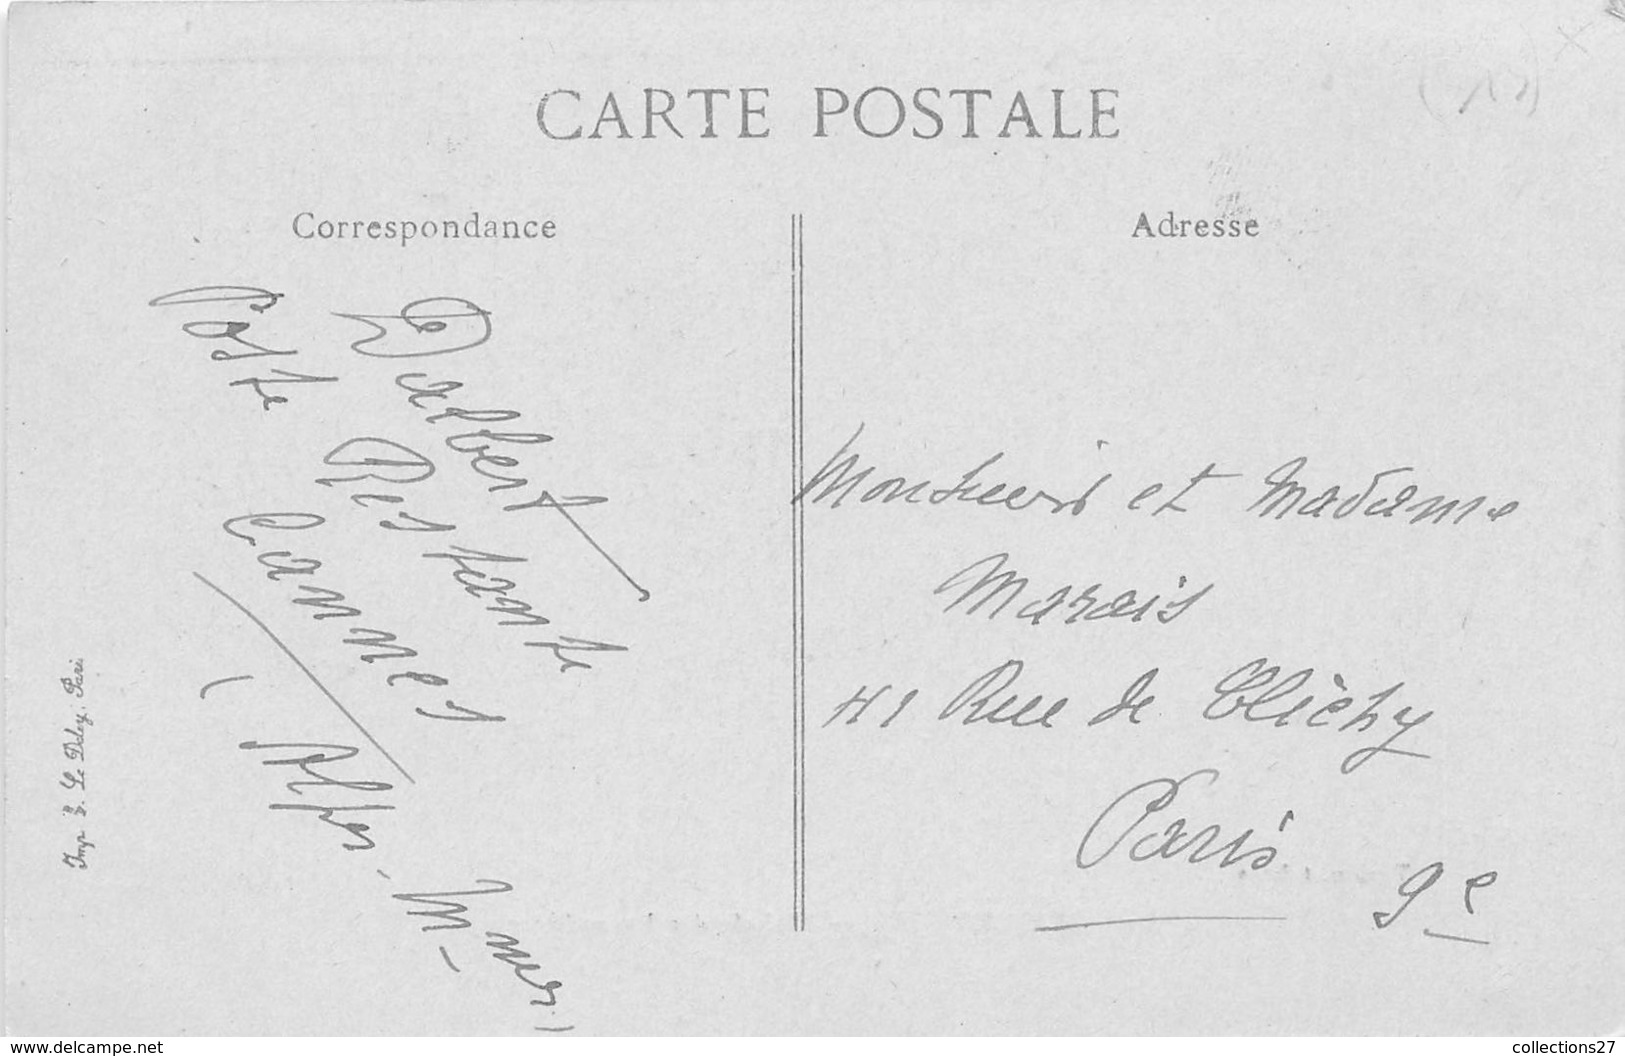 CARTE POSTALE
Correspondance
Adresse
Dalbert
Poste Restante
Cannes
(Alpes-Mmes)
Monsieur et Madame
Marais
41 Rue de Clichy
Paris 9e
Imp. E. Le Deley, Paris
www.delcampe.net
collections27